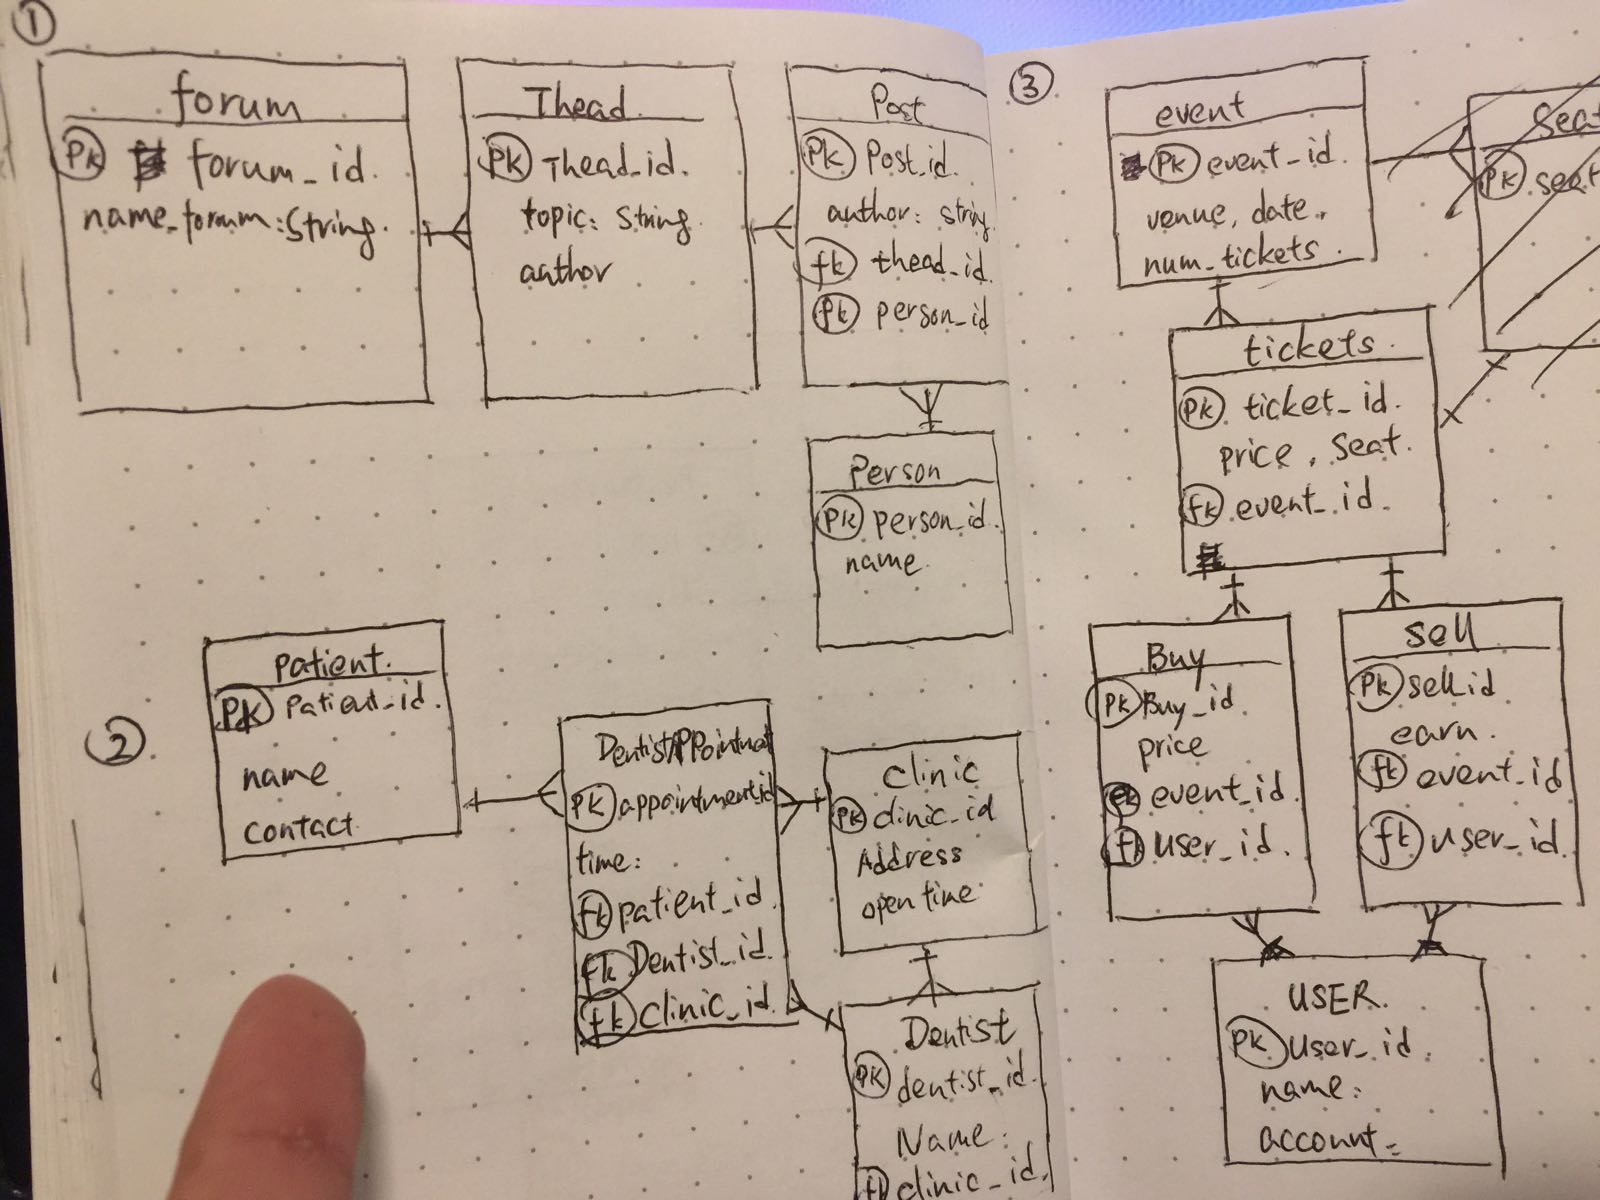 ①
forum
PK forum_id.
name_forum: String.
Thead
PK Thead_id.
topic: String
author
Post
PK Post_id.
author: string
fk thead_id
fk person_id
Person
PK person_id.
name
②
patient.
PK Patient_id.
name
contact
PK appointment_id
time:
fk patient_id
fk Dentist_id.
fk clinic_id.
clinic
PK clinic_id
Address
open time
Dentist
PK dentist_id.
Name.
fk clinic_id.
③
event
PK event_id.
venue, date,
num_tickets.
Seat
PK seat
tickets.
PK ticket_id.
price, seat.
fk event_id.
Buy
PK Buy_id.
price
event_id.
fk user_id.
sell
PK sell_id
earn.
fk event_id
fk user_id.
USER.
PK user_id.
name:
account-